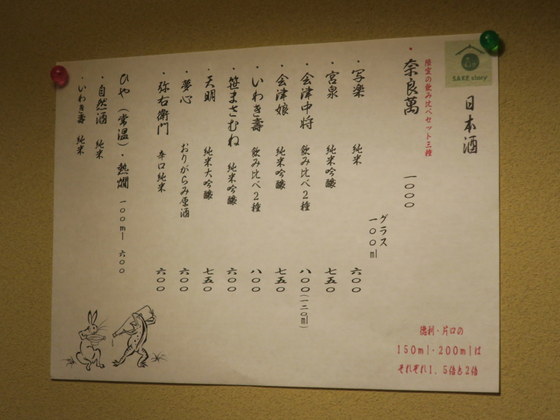 SAKE story
日本酒
限定の飲み比べセット三種
・奈良萬 一〇〇〇
グラス
一〇〇ml
・写楽 純米 六〇〇
・宮泉 純米吟醸 七五〇
・会津中将 飲み比べ2種 八〇〇(一二〇ml)
・会津娘 純米吟醸 七五〇
・いわき壽 飲み比べ2種 八〇〇
・笹まさむね 純米吟醸 六〇〇
・天明 純米大吟醸 七五〇
・夢心 おりがらみ原酒 六〇〇
・弥右衛門 辛口純米 六〇〇
ひや(常温)・熱燗 一〇〇ml 六〇〇
・自然酒 純米
・いわき壽 純米
徳利・片口の
150ml・200mlは
それぞれ1.5倍と2倍